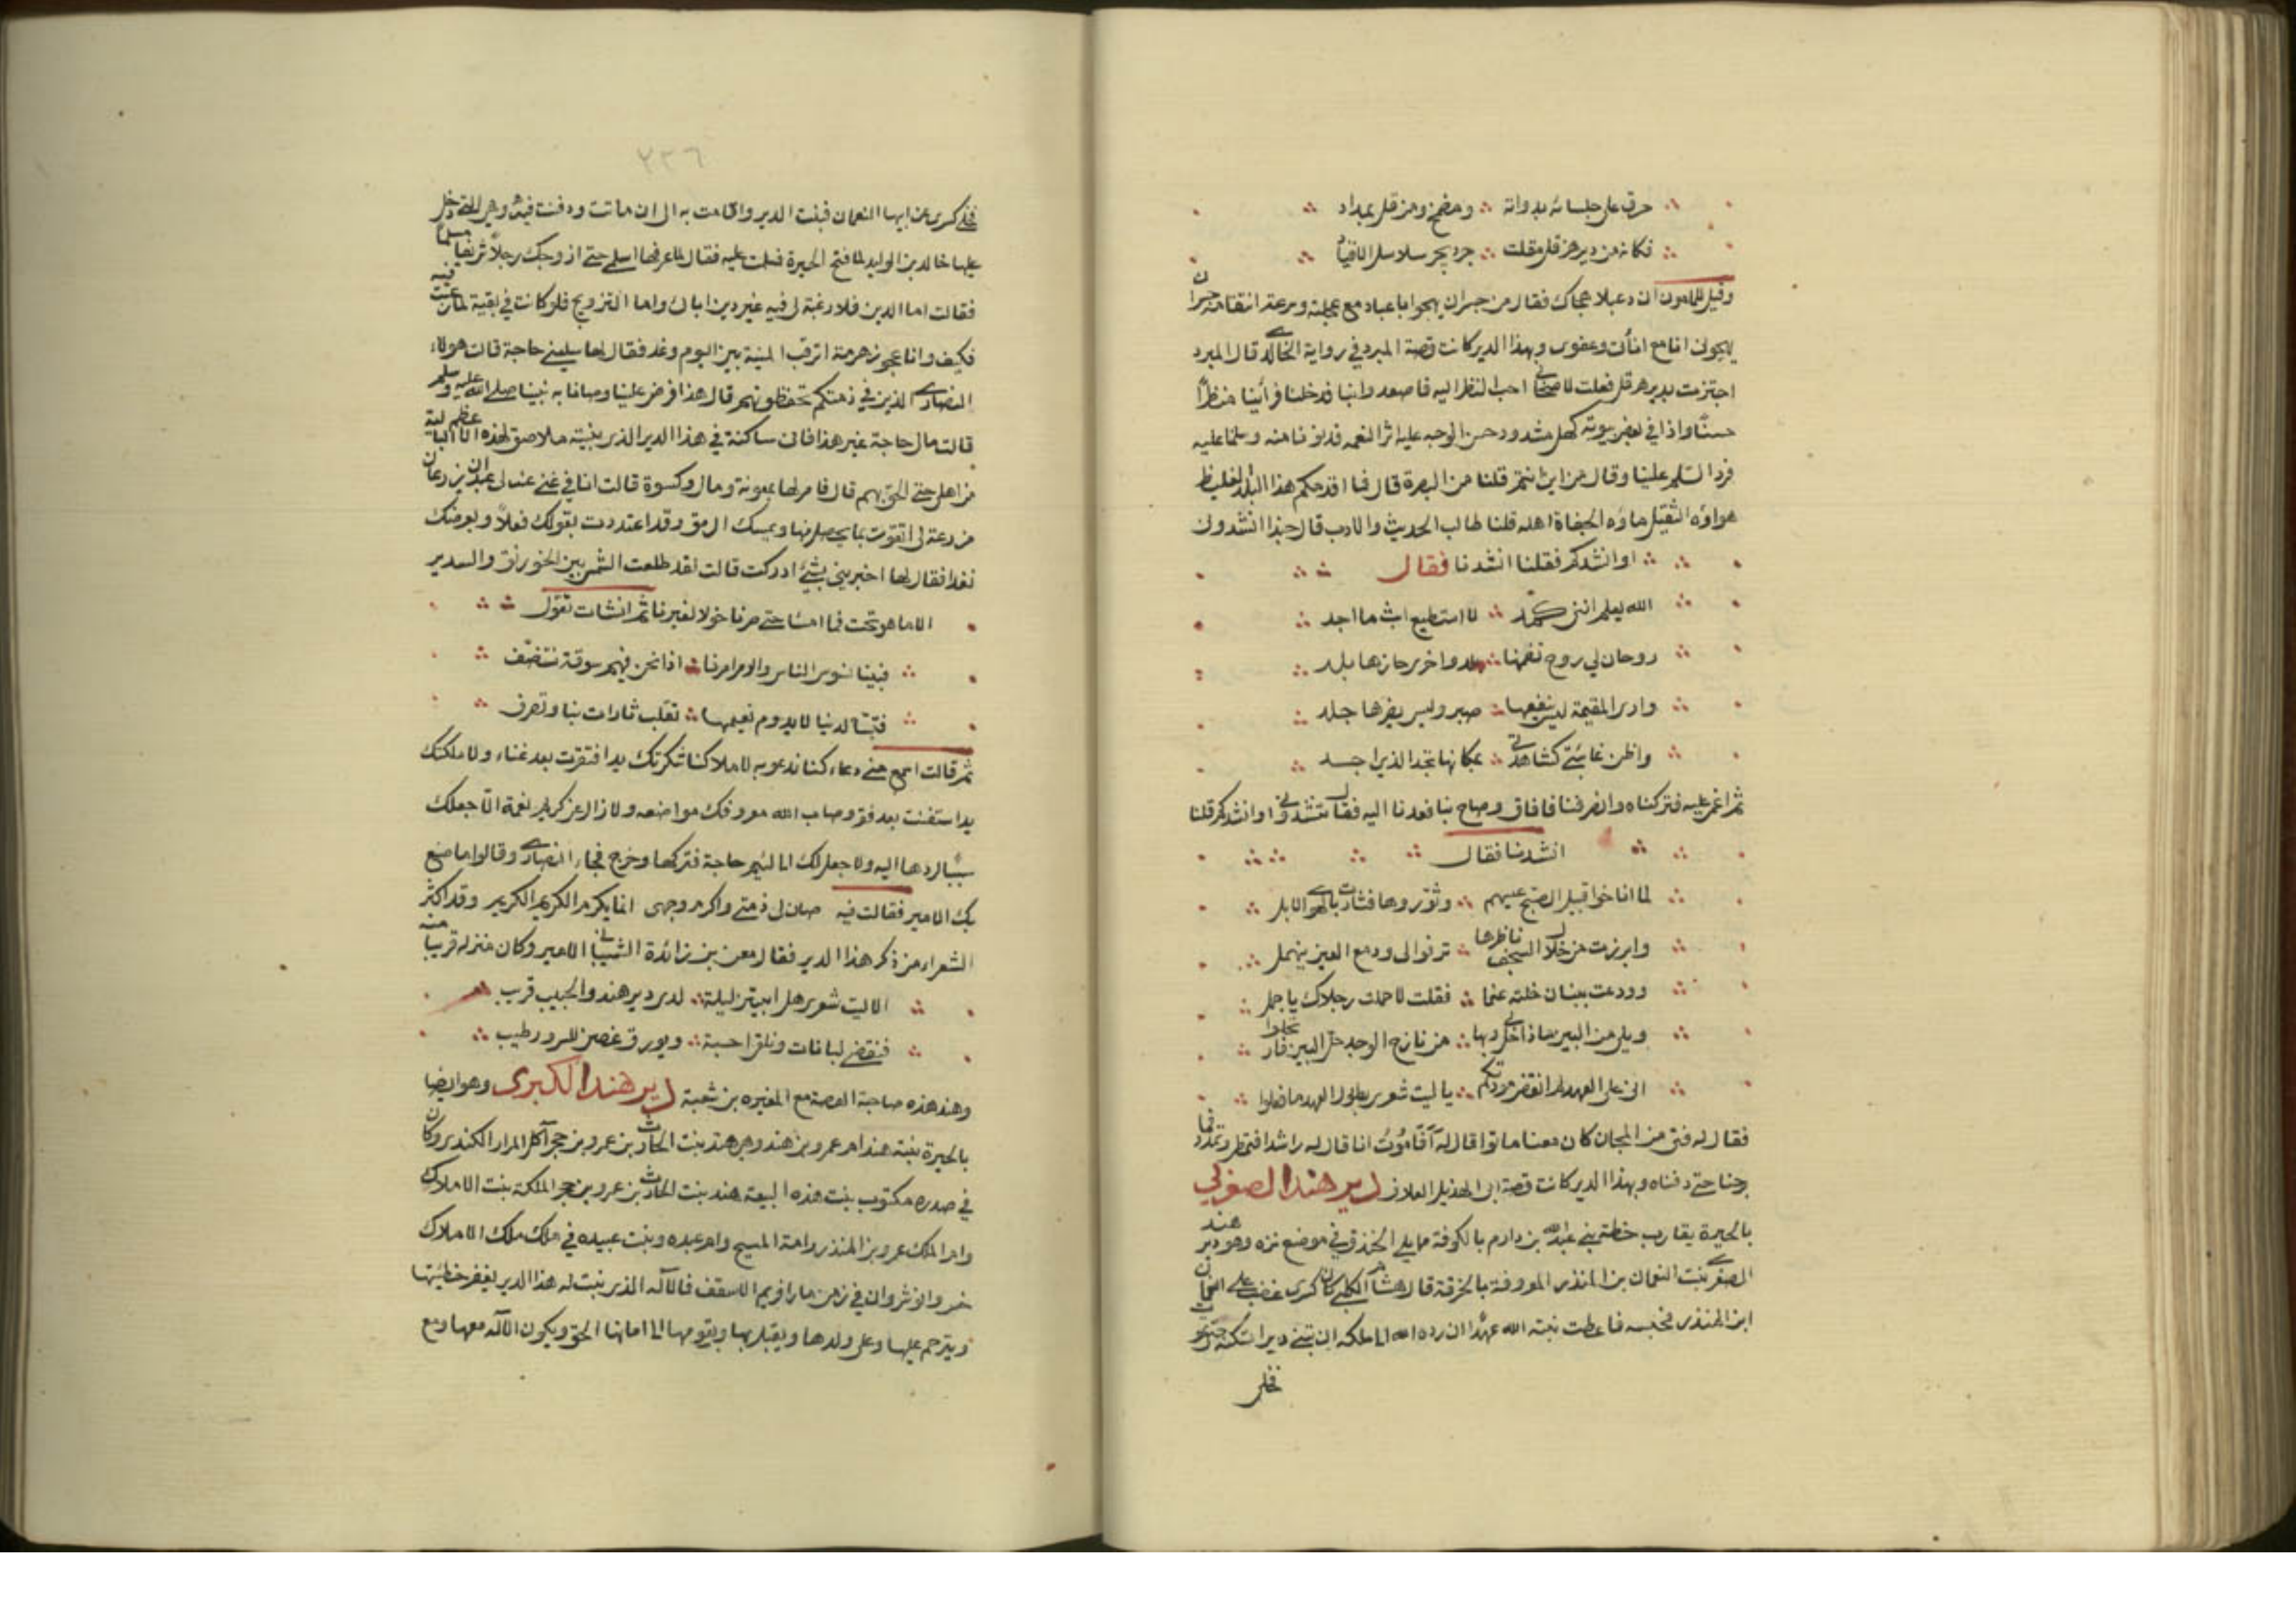 حرق على جلسائه بدواته ومضمخ ومرقل بمداد
فكانه من دير هزقل مفلت جرد يجر سلاسل الاقياد
وقيل للمامون ان دعبلا هجاك فقال من جسر ان يهجو ابا عباد مع عجلته وسرعة انتقامه جسر ان
يهجوني انا مع اناتي وعفوي وبهذا الدير كانت قصة المبرد في رواية الخالدي قال المبرد
اجتزت بدير هرقل فقلت لاصحابي احب النظر اليه فاصعدوا بنا فدخلنا فرأينا منظرًا
حسنًا واذا في بعض بيوته كهل مشدود حسن الوجه عليه اثر النعمه فدنونا منه وسلمنا عليه
فرد السلم علينا وقال من اين انتم قلنا من البصرة قال فما اقدمكم هذا البلد الغليظ
هواؤه الثقيل ماؤه الجفاة اهله قلنا طالب الحديث والادب قال حبذا انشدوني
او انشدكم فقلنا انشدنا فقال
الله يعلم انني كمد لا استطيع ابث ما اجد
روحان لي روح تضمنها بلد واخرى حازها بلد
وارى المقيمة ليس ينفعها صبر وليس يضرها جلد
واظن غائبتي كشاهدتي بمكانها تجد الذي اجد
ثم اغمي عليه فتركناه وانصرفنا فافاق وصاح بنا فعدنا اليه فقال تنشدوني او انشدكم قلنا
انشدنا فقال
لما اناخوا قبيل الصبح عيسهم وثوروها فثارت بالهوى الابل
وابرزت من خلال السجف ناظرها ترنو الي ودمع العين ينهمل
وودعت ببنان خلته عنما فقلت لا حملت رجلاك يا جمل
ويلي من البين ماذا حل بي وبها من نازح الوجد حل البين فارتحلوا
اني على العهد لم انقض مودتكم يا ليت شعري بطول العهد ما فعلوا
فقال له فتى من المجان كان معنا ماتوا قال له آفاموت انا قال له راشدا فتمطى وتمدد فما
برحنا حتى دفناه وبهذا الدير كانت قصة ابي الهذيل العلاف دير هند الصغرى
بالحيرة يقارب خطة بني عبد الله بن دارم بالكوفة مما يلي الخندق في موضع نزه وهو دير هند
الصغرى بنت النعمان بن المنذر المعروفة بالحرقة قال هشام الكلبي كان كسرى غضب على النعمان
ابن المنذر فحبسه فاعطت بنته الله عهدًا ان رده الله الى ملكه ان تبني ديرا تسكنه حتى تموت
فخلى
٢٣٦
فخلى كسرى عن ابيها النعمان فبنت الدير واقامت به الى ان ماتت ودفنت فيه وهي التي دخل
عليها خالد بن الوليد لما فتح الحيرة فسلمت عليه فقال لما عرفها اسلمي حتى ازوجك رجلاً شريفا مسلما
فقالت اما الدين فلا رغبة لي فيه غير دين ابائي واما التزويج فلو كانت في بقية لما رغبت فيه
فكيف وانا عجوز هرمة اترقب المنية بين اليوم وغد فقال لها سليني حاجة قالت هولاء
النصارى الذين في ذمتكم تحفظونهم قال هذا فرض علينا وصانا به نبينا صلى الله عليه وسلم
قالت مالي حاجة غير هذا فاني ساكنة في هذا الدير الذي بنيته ملاصق لهذه الاعظم البالية
من اهلي حتى الحق بهم قال فامر لها بمعونة ومال وكسوة قالت انا في غنى عنه لي عبدان يزرعان
مزرعة لي اتقوت بما يحصل منها ويمسك الرمق وقد اعتددت بقولك فعلاً وبعرضك
نقدا فقال لها اخبريني بشيء ادركت قالت لقد طلعت الشمس بين الخورنق والسدير
الا ما هو تحت فما امسا حتى صرنا خولا لغيرنا ثم انشات تقول
فبينا نسوس الناس والامر امرنا اذا نحن فيهم سوقة نتنصف
فتبّا لدنيا لا يدوم نعيمها تقلب تارات بنا وتصرف
ثم قالت اسمع مني دعاء كنا ندعو به لاملاكنا شكرتك يد افتقرت بعد غناء ولا ملكتك
يد استغنت بعد فقر وصاب الله معروفك مواضعه ولا زال عن كريم نعمة الا جعلك
سببا لردها اليه ولا جعل لك الى لئيم حاجة فتركها وخرج فجاء النصارى وقالوا ما صنع
بك الامير فقالت فيه صان لي ذمتي واكرم وجهي انما يكرم الكريم الكريم وقد اكثر
الشعراء من ذكر هذا الدير فقال معن بن زائدة الشيباني الامير وكان منزله قريبا منه
الا ليت شعري هل ابيتن ليلة لدى دير هند والحبيب قريب
فنقضي لبانات ونلقى احبة ويورق غصن للسرور رطيب
وهند هذه صاحبة القصة مع المغيره بن شعبة دير هند الكبرى وهو ايضا
بالحيرة بنته هند ام عمرو بن هند وهي هند بنت الحارث بن عمرو بن حجر آكل المرار الكندي وكان
في صدره مكتوب بنت هذه البيعة هند بنت الحارث بن عمرو بن حجر الملكة بنت الاملاك
وام الملك عمرو بن المنذر وامة المسيح وام عبده وبنت عبيده في ملك ملك الاملاك
خسرو انوشروان في زمن مار افريم الاسقف فالآله الذي بنت له هذا الدير يغفر خطيئتها
ويترحم عليها وعلى ولدها ويقبل بها ويقومها الى امانها الحق ويكون الآله معها ومع